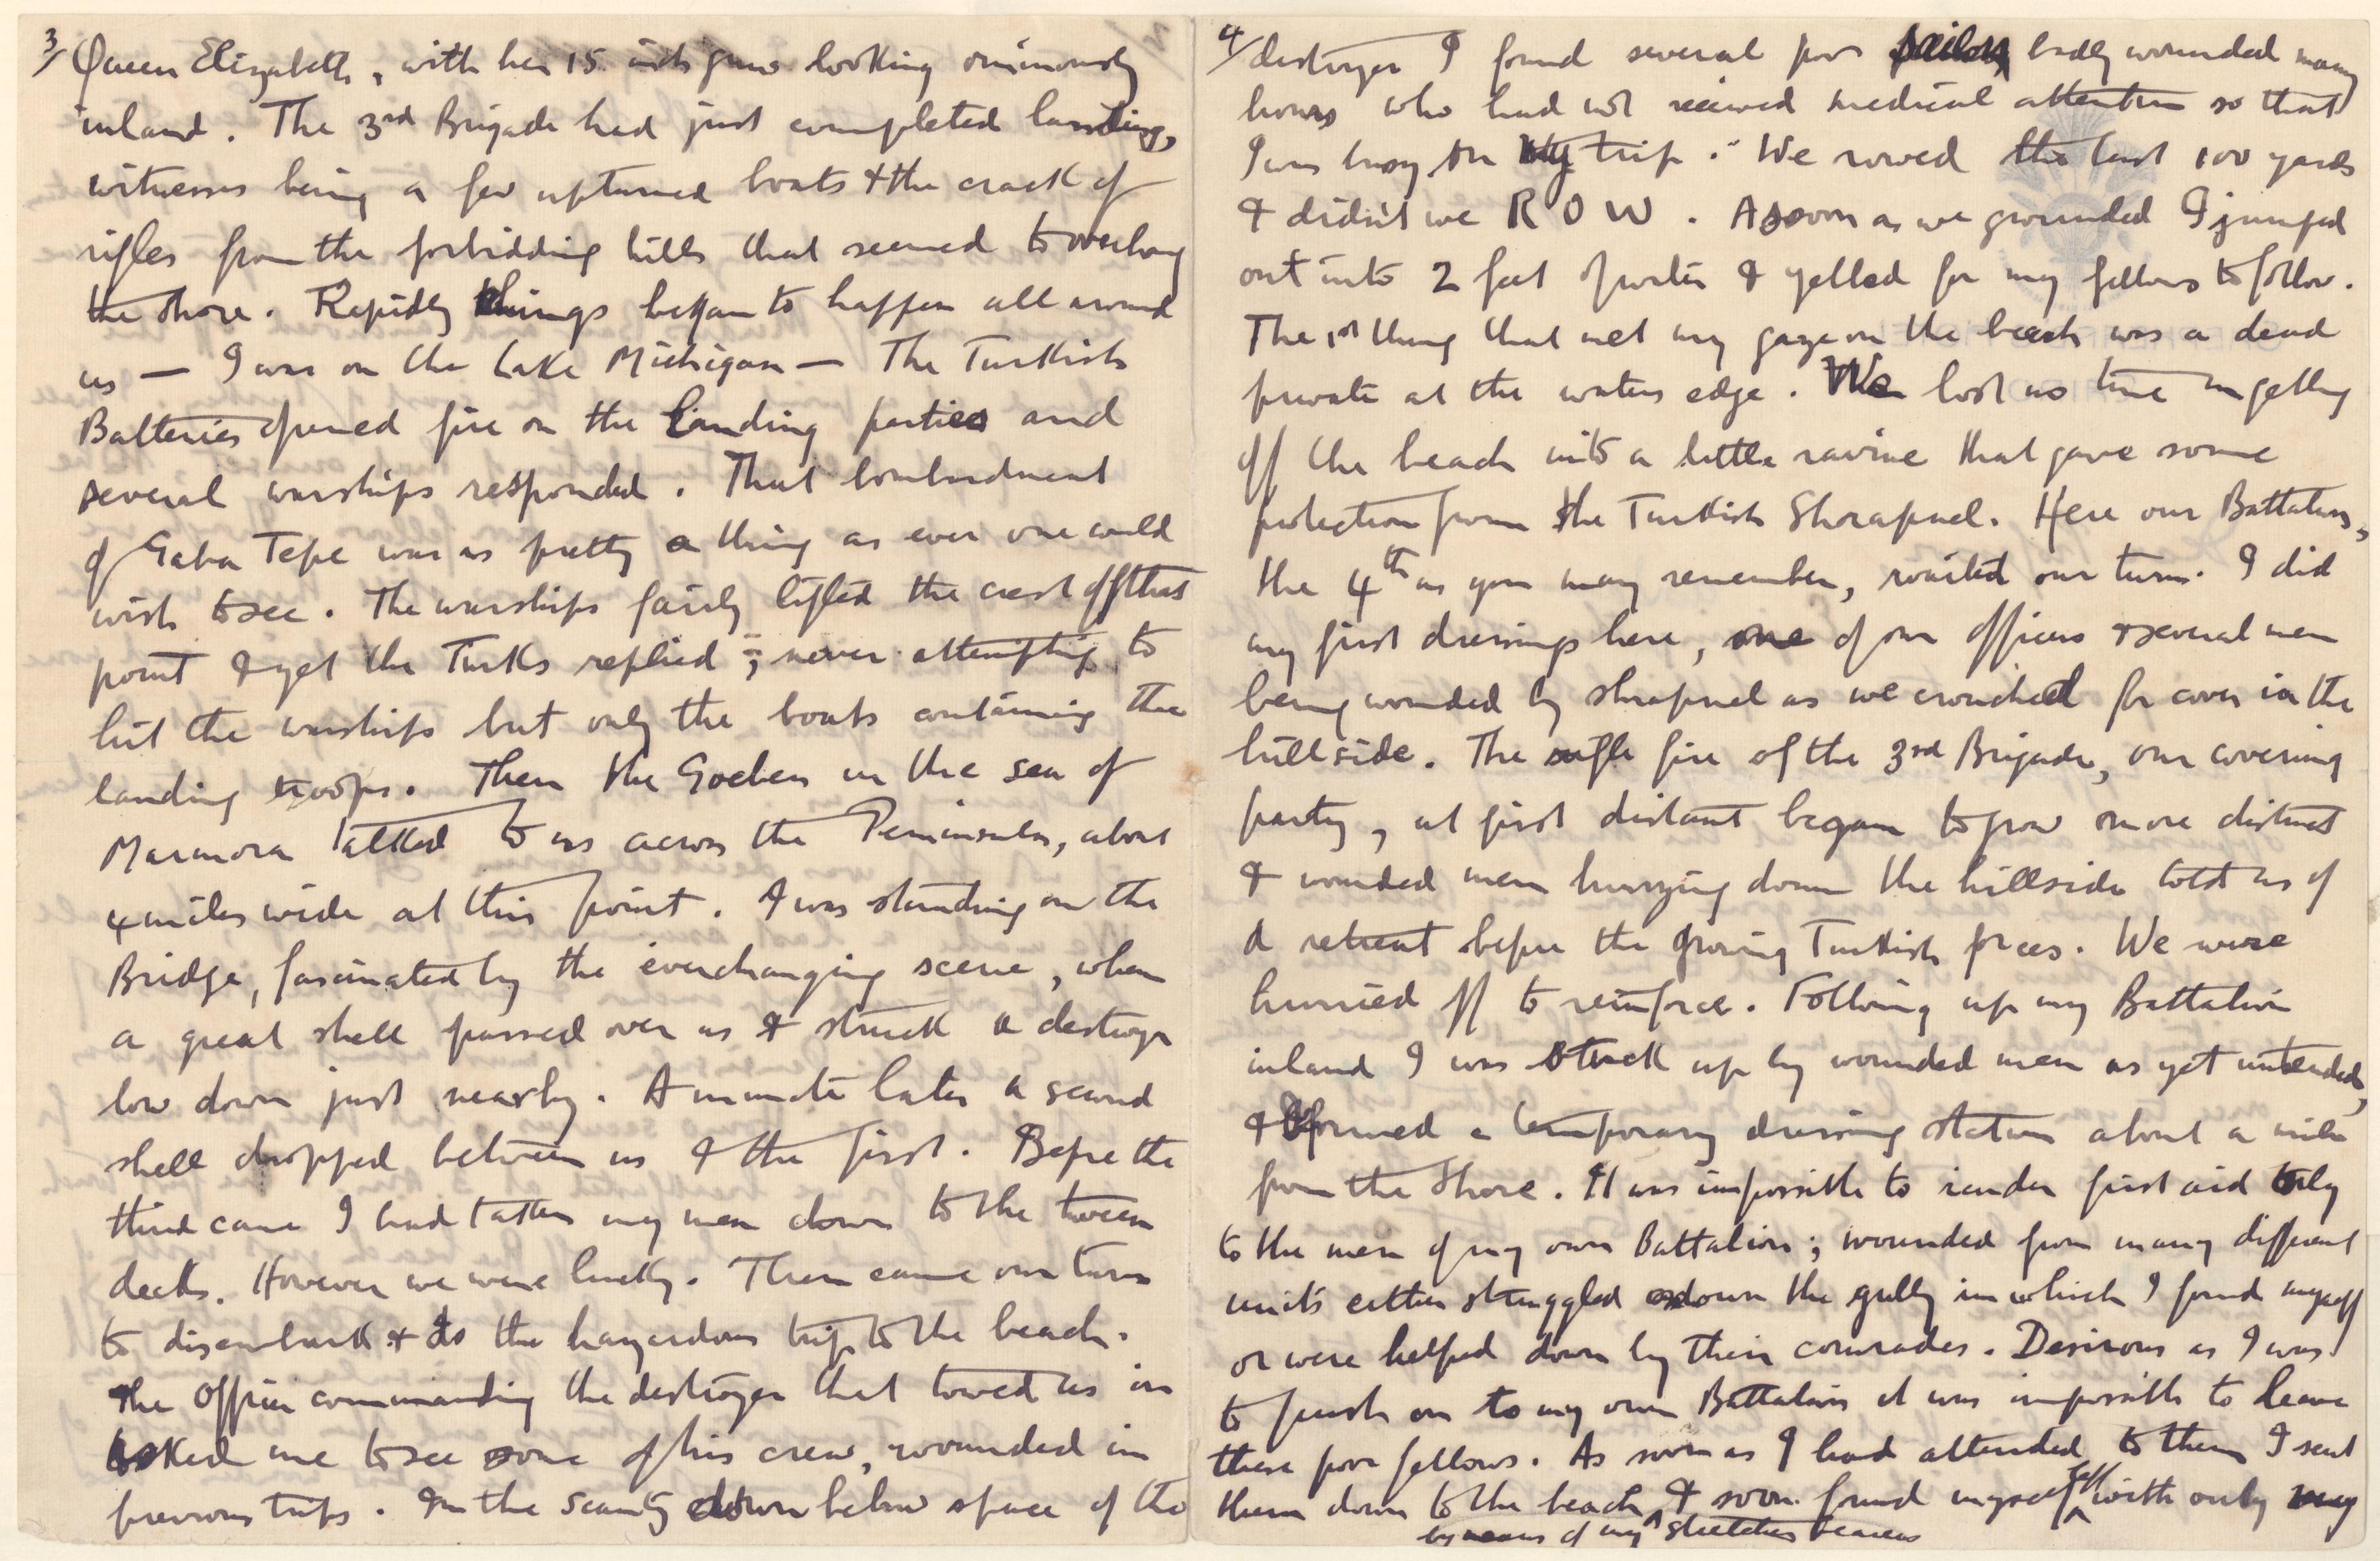 3/ Queen Elizabeth, with her 15 inch guns looking ominously
inland. The 3rd Brigade had just completed landing,
witnesses being a few upturned boats & the crack of
rifles from the forbidding hills that seemed to overhang
the shore. Rapidly things began to happen all around
us — I was on the Lake Michigan — The Turkish
Batteries opened fire on the landing parties and
several warships responded. That bombardment
of Gaba Tepe was as pretty a thing as ever one could
wish to see. The warships fairly lifted the crest off that
point & yet the Turks replied; never attempting to
hit the warships but only the boats containing the
landing troops. Then the Goeben in the sea of
Marmora talked to us across the Peninsula, about
4 miles wide at this point. I was standing on the
Bridge, fascinated by the everchanging scene, when
a great shell passed over us & struck a destroyer
low down just nearby. A minute later a second
shell dropped between us & the first. Before the
third came I had taken my men down to the tween
decks. However we were lucky. Then came our turn
to disembark & do the hazardous trip to the beach.
The Officer commanding the destroyer that towed us in
asked me to see some of his crew, wounded in
previous trips. In the scanty down below space of the
4/ destroyer I found several poor sailors badly wounded many
hours who had not received medical attention so that
I was busy on the trip. We rowed the last 100 yards
& didn't we ROW. As soon as we grounded I jumped
out into 2 feet of water & yelled for my fellows to follow.
The 1st thing that met my gaze on the beach was a dead
private at the waters edge. We lost no time in getting
off the beach into a little ravine that gave some
protection from the Turkish Shrapnel. Here our Battalion,
the 4th as you may remember, waited our turn. I did
my first dressings here, one of our officers & several men
being wounded by shrapnel as we crouched for cover in the
hillside. The rifle fire of the 3rd Brigade, our covering
party, at first distant began to grow more distinct
& wounded men hurrying down the hillside told us of
a retreat before the growing Turkish forces. We were
hurried off to reinforce. Following up my Battalion
inland I was stuck up by wounded men as yet untended,
& formed a temporary dressing station about a mile
from the shore. It was impossible to render first aid only
to the men of my own Battalion; wounded from many different
units either struggled down the gully in which I found myself
or were helped down by their comrades. Desirous as I was
to push on to my own Battalion it was impossible to leave
these poor fellows. As soon as I had attended to them I sent
them down to the beach by means of my stretcher bearers & soon found myself left with only my